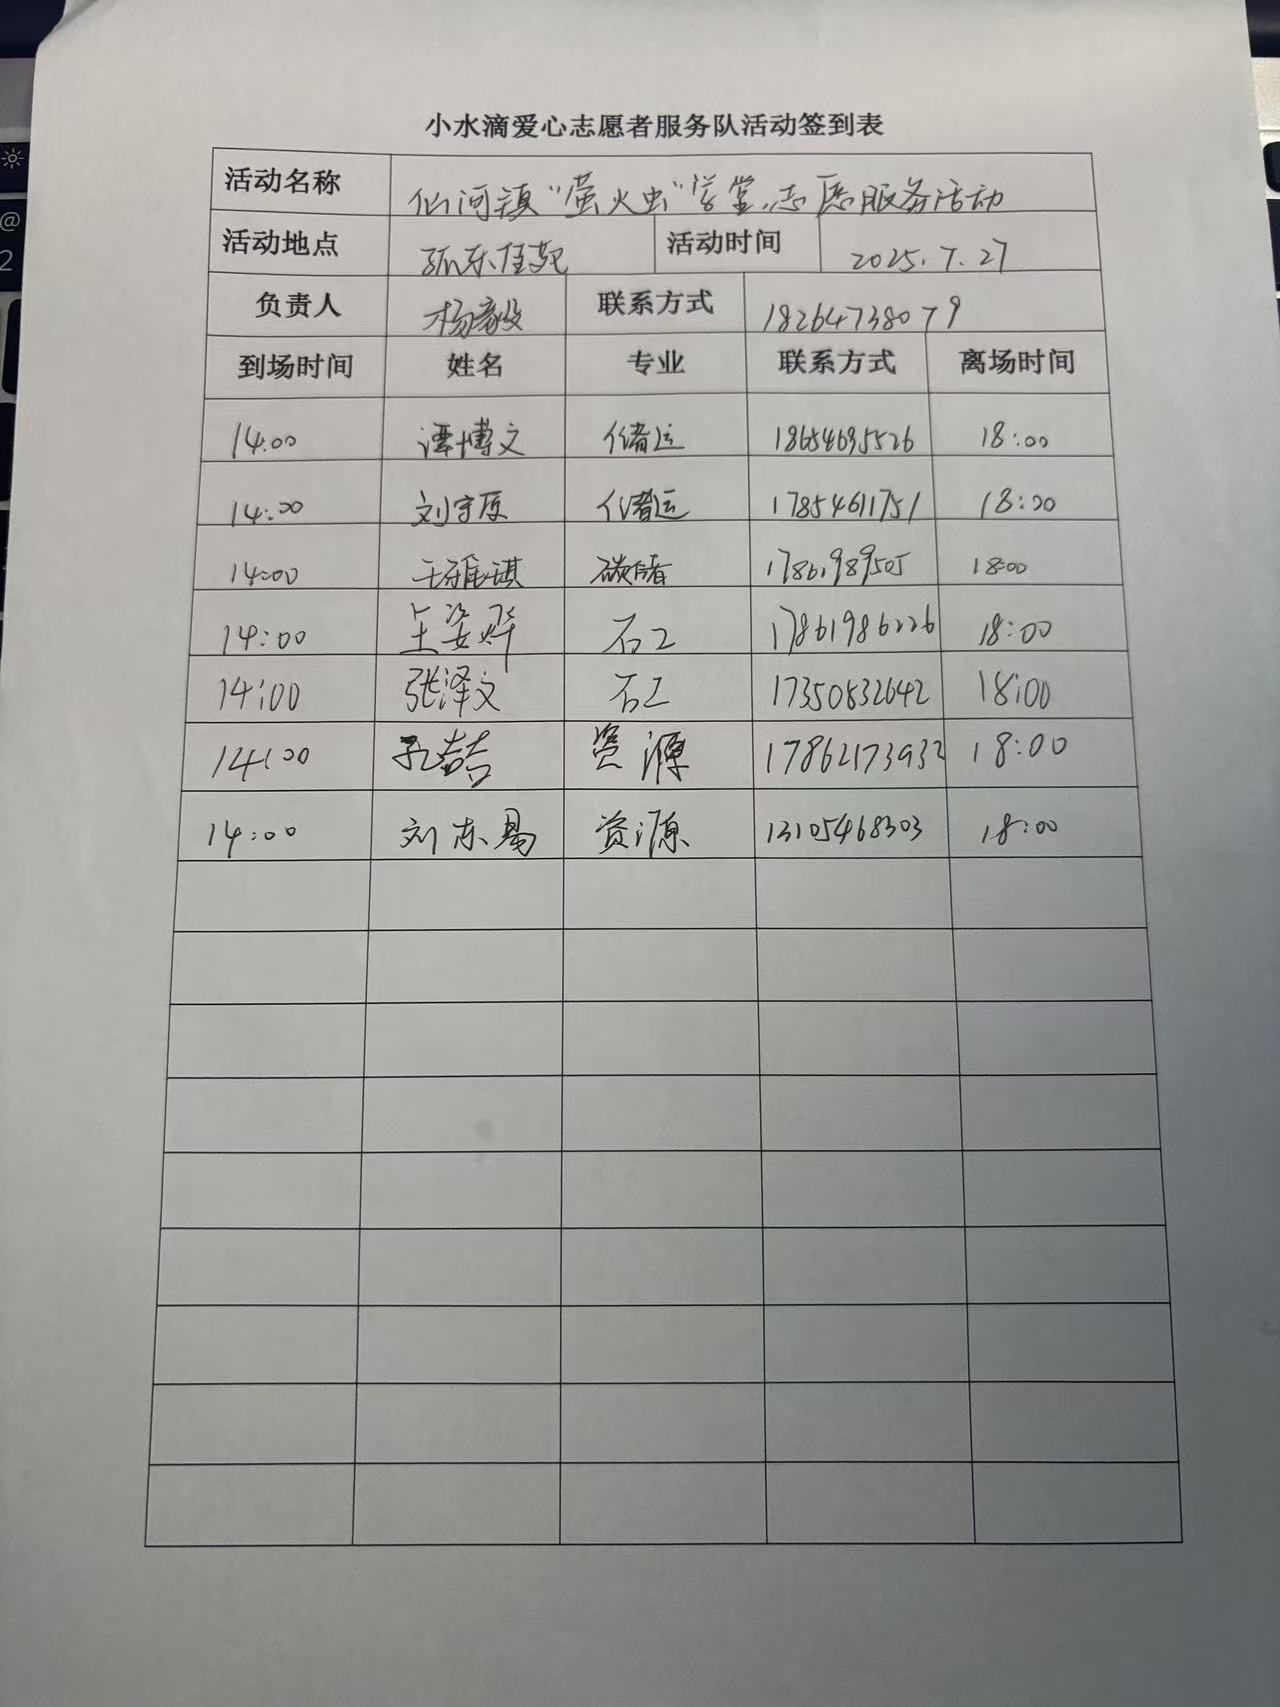 小水滴爱心志愿者服务队活动签到表
活动名称 仙河镇“萤火虫”学堂志愿服务活动
活动地点 孤东佳苑 活动时间 2025.7.27
负责人 杨毅 联系方式 18264738079
到场时间 姓名 专业 联系方式 离场时间
14:00 谭博文 储运 18654695526 18:00
14:00 刘宇辰 储运 17854611751 18:00
14:00 王雅琪 碳储 17861989505 18:00
14:00 王姿烨 石工 17861986226 18:00
14:00 张泽文 石工 17350832642 18:00
14:00 孔喆 资源 17862173932 18:00
14:00 刘东易 资源 13105468303 18:00
@
2